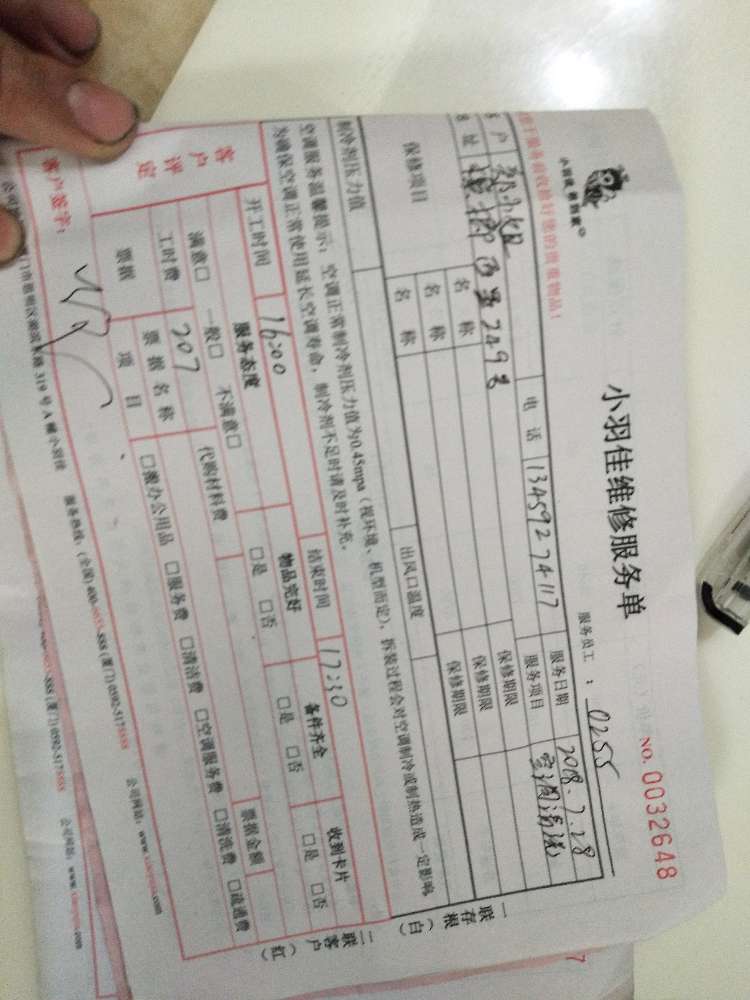 小羽佳 家到家
小羽佳维修服务单
NO. 0032648
服务员工：0255
请于服务前收拾好您的贵重物品！
客户 小姐 电话 13459274117 服务日期 2018.7.28
地址 249号 服务项目 空调清洗
保修项目 名称 保修期限
名称 保修期限
名称 保修期限
制冷剂压力值 出风口温度
空调服务温馨提示：空调正常制冷剂压力值为0.45mpa（视环境、机型而定），拆装过程会对空调制冷或制热造成一定影响，
为确保空调正常使用延长空调寿命，制冷剂不足时请及时补充。
开工时间 16:00 结束时间 17:30
客户评定 服务态度 物品完好 备件齐全 收到卡片
满意□ 一般□ 不满意□ □是 □否 □是 □否 □是 □否
工时费 207 代购材料费
票据 票据名称 票据金额
项目 □搬办公用品 □服务费 □清洁费 □空调服务费 □清洗费 □疏通费
客户签字：
319号A幢小羽佳 服务热线：(全国)400- -888 (厦门)0592-5178888 公司网站：www. .com
一联存根（白）
二联客户（红）
7
-888 (厦门)0592-5178888 公司网站：www. .com